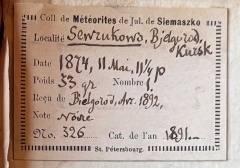 Coll. de Météorites de Jul. de Siemaszko
Localité Sewrukowo, Bjelgorod,
Kursk
Date 1874, 11 Mai, 11½ p
Poids 33 gr Nombre 1.
Reçu de Bielgorod, Avr. 1892,
Note Noire
No. 326 Cat. de l'an 1891
St. Pétersbourg.